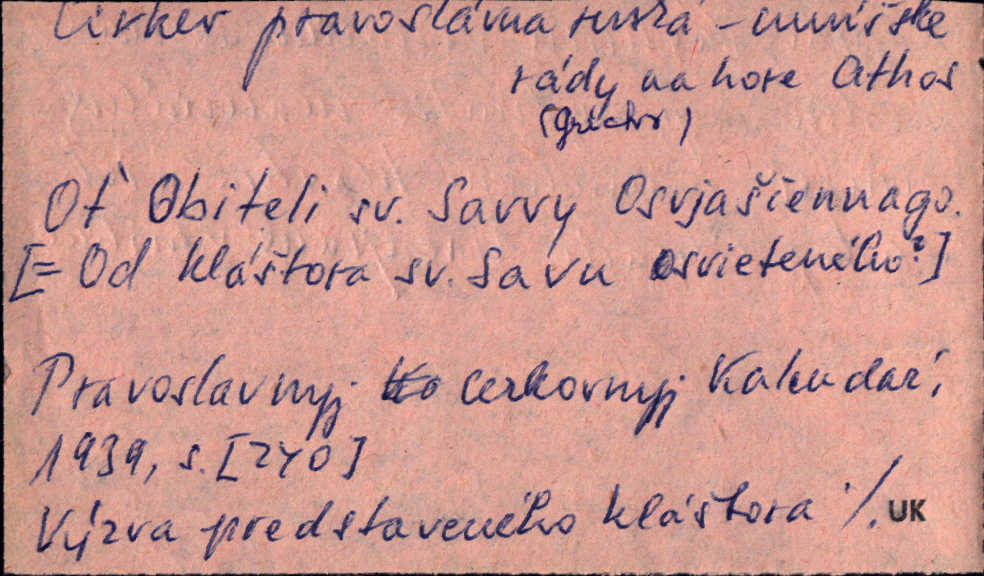 Cirkev pravoslávna ruská - mníšske
rády na hore Athos
(Grécko)
Ot' Obiteli sv. Savvy Osvjaščennago.
[= Od kláštora sv. Savu osvieteného?]
Pravoslavnyj cerkovnyj Kalendar',
1939, s. [240]
Výzva predstaveného kláštora ./. UK